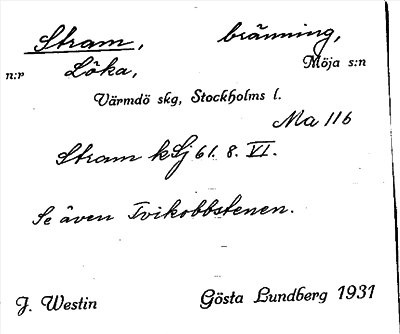 Stram, bränning,
n:r Löka, Möja s:n
Värmdö skg, Stockholms l.
Ma 116
Stram kSj 61. 8. VI.
Se även Tvikobbstenen.
J. Westin Gösta Lundberg 1931